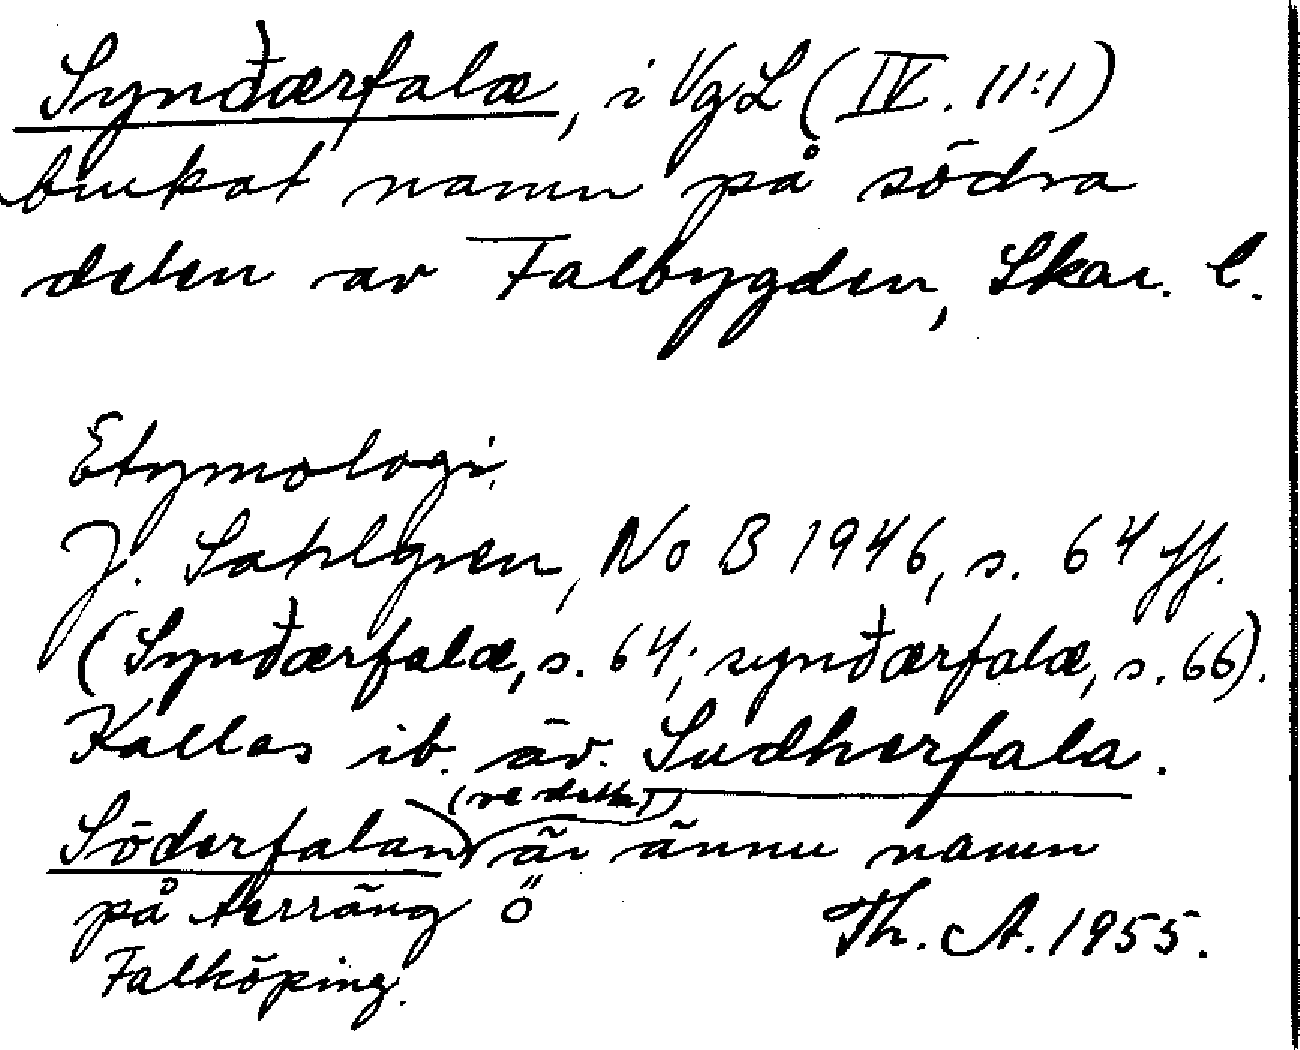 Synđærfalæ, i VgL (IV. 11:1)
brukat namn på södra
delen av Falbygden, Skar. l.
Etymologi.
J. Sahlgren, NoB 1946, s. 64 ff.
(Synđærfalæ, s. 64; synđærfalæ, s. 66).
Kallas ib. äv. Sudherfala.
(se detta)
Söderfalan är ännu namn
på terräng ö
Falköping.
Th. A. 1955.